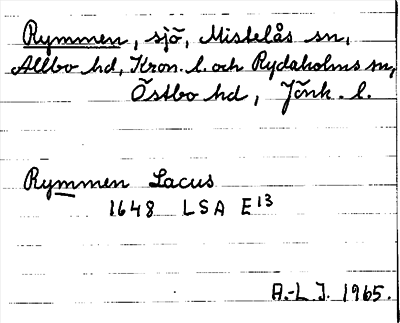 Rymmen, sjö, Mistelås sn,
Allbo hd, Kron. l. och Rydaholms sn,
Östbo hd, Jönk. l.
Rymmen Lacus
1648 LSA E13
A.-L J. 1965.